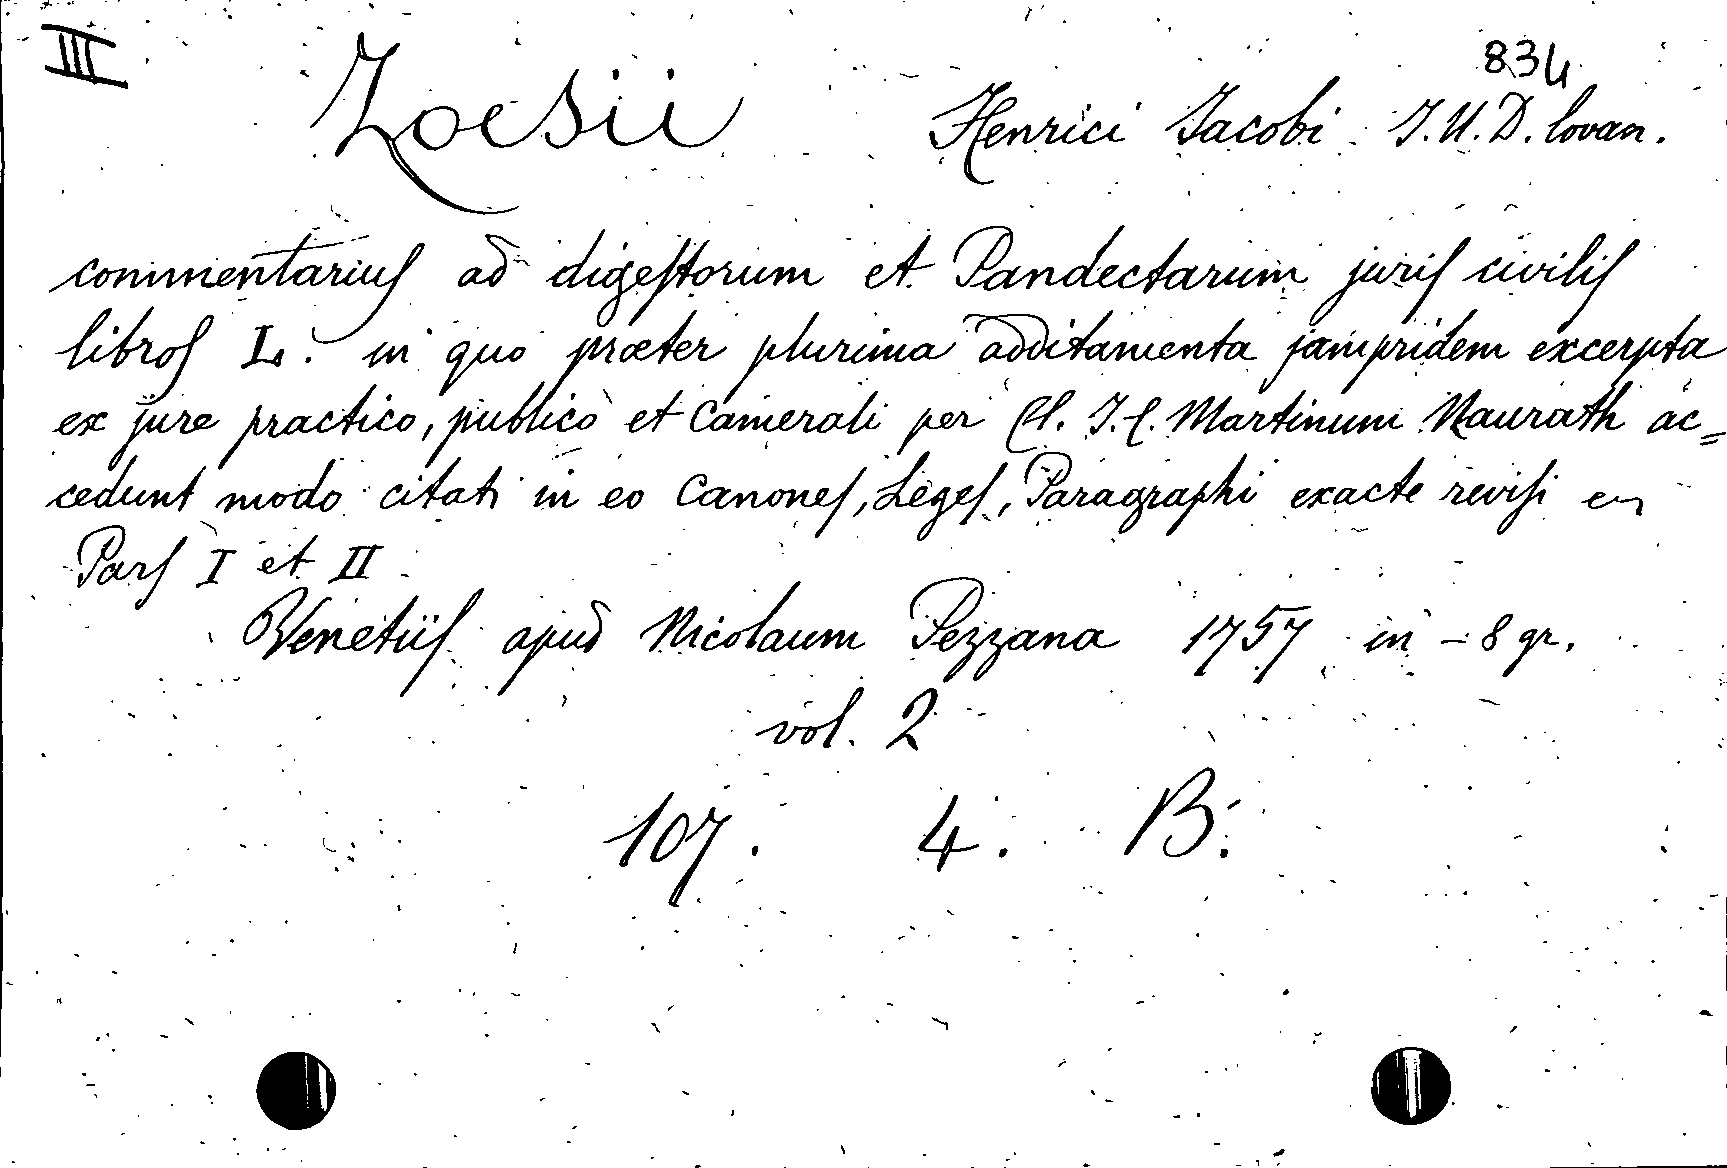 III
834
Zoesii Henrici Jacobi J.U.D. lovan.
commentariuſ ad digeſtorum et Pandectarum juriſ civiliſ
libroſ L. in quo præter plurima additamenta jampridem excerpta
ex jure practico, publico et Camerali per Cl. J.C. Martinum Naurath ac=
cedunt modo citati in eo Canoneſ, Legeſ, Paragraphi exacte reviſi
Parſ I et II
Venetiiſ apud Nicolaum Pezzana 1757 in - 8 gr.
vol. 2
107. 4. B.